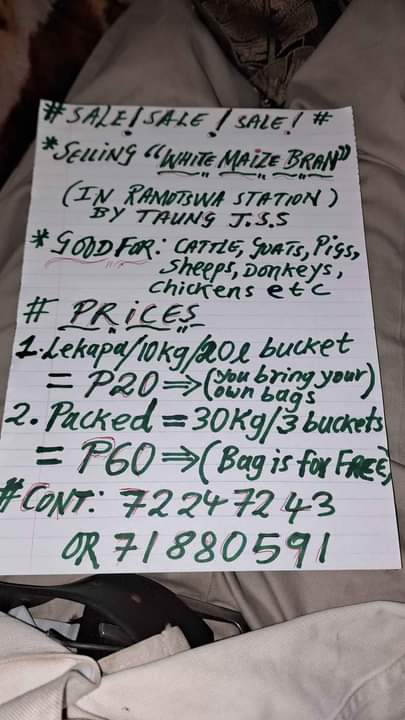 # SALE! SALE! SALE! #
* SELLING "WHITE MAIZE BRAN"
(IN RAMOTSWA STATION)
BY TAUNG J.S.S
* GOOD FOR: CATTLE, GOATS, PIGS,
Sheeps, Donkeys,
Chickens etc
# PRiCES
1. Lekapa/10kg/20l bucket
= P20 ⇒ (you bring your
own bags)
2. Packed = 30Kg/3 buckets
= P60 ⇒ (Bag is for FREE)
#CONT: 72247243
OR 71880591